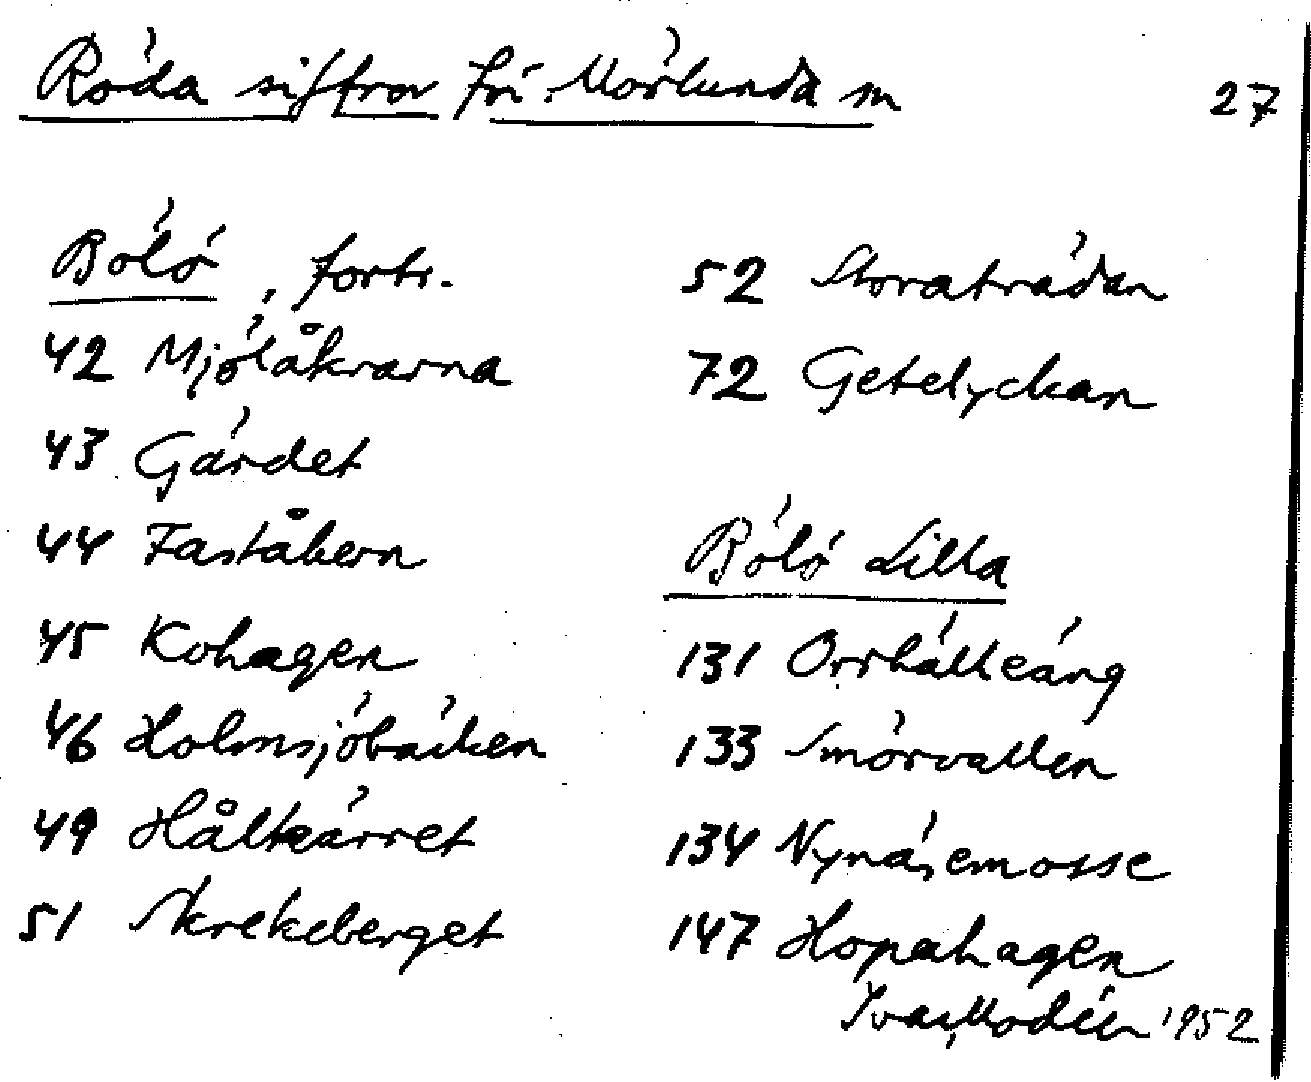 Röda siffror fr. Mörlunda sn
27
Bölö, forts.
42 Mjölåkrarna
43 Gärdet
44 Faståkern
45 Kohagen
46 Holmsjöbäcken
49 Hålkärret
51 Skrekeberget
52 Storaträdan
72 Getelyckan
Bölö Lilla
131 Orrhälleäng
133 Smörvallen
134 Nynäsemosse
147 Hopahagen
Ivar Modéer 1952